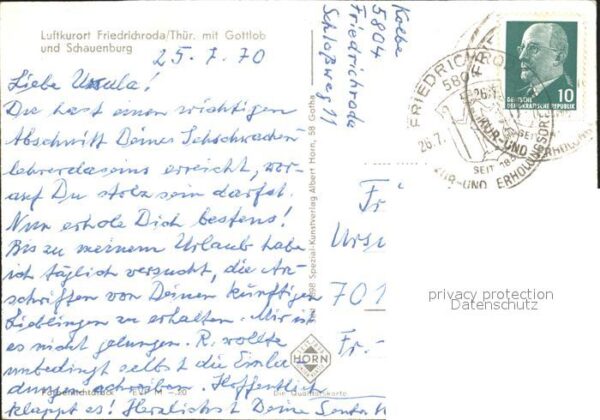 Luftkurort Friedrichroda/Thür. mit Gottlob
und Schauenburg
25.7.70
Liebe Ursula!
Du hast einen wichtigen
Abschnitt Deines Sehschwachen-
lehrerdaseins erreicht, wor-
auf Du stolz sein darfst.
Nun erhole Dich bestens!
Bis zu meinem Urlaub habe
ich täglich versucht, die An-
schriften von Deinen künftigen
Lieblingen zu erhalten. Mir ist
es nicht gelungen. R. wollte
unbedingt selbst die Einla-
dungen schreiben. Hoffentlich
klappt es! Herzlichst Deine
Kolbe
5804
Friedrichroda
Schloßweg 11
898 Spezial-Kunstverlag Albert Horn, 58 Gotha
HORN
Die Qualitätskarte
FRIEDRICHRODA
5804
26.7.
SEIT
KUR- UND ERHOLUNGSORT
DEUTSCHE
DEMOKRATISCHE REPUBLIK
10
Fr
Ursu
701
Fr.-
privacy protection
Datenschutz